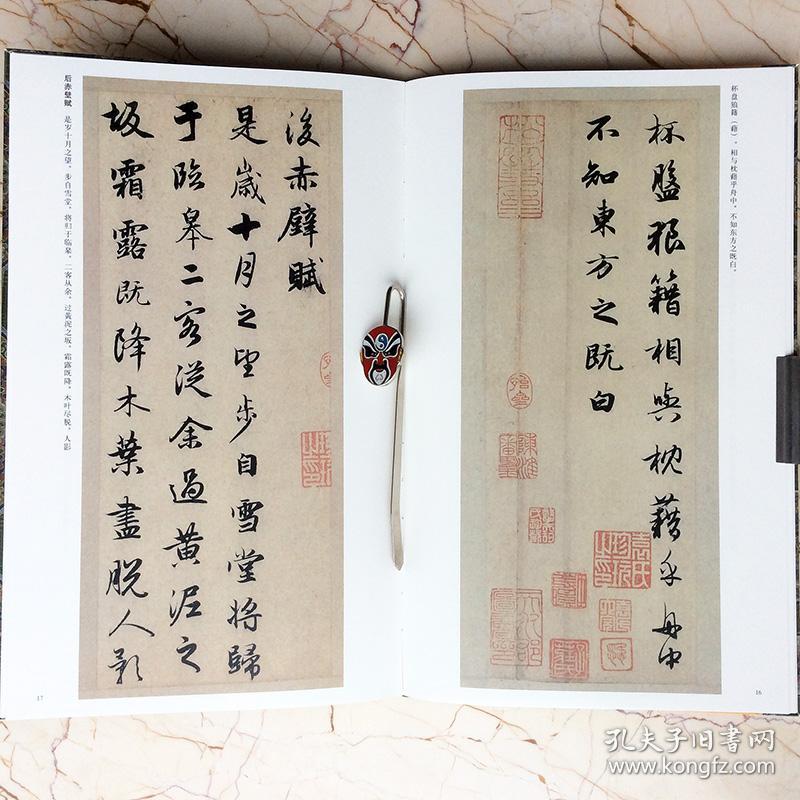 杯盘狼籍（藉），相与枕藉乎舟中，不知东方之既白。
杯盤狼籍相與枕藉乎舟中
不知東方之既白
16
後赤壁賦
是歲十月之望步自雪堂將歸
于臨皋二客從余過黄泥之
坂霜露既降木葉盡脱人影
后赤壁赋 是岁十月之望，步自雪堂，将归于临皋。二客从余，过黄泥之坂。霜露既降，木叶尽脱，人影
17
孔夫子旧书网
www.kongfz.com